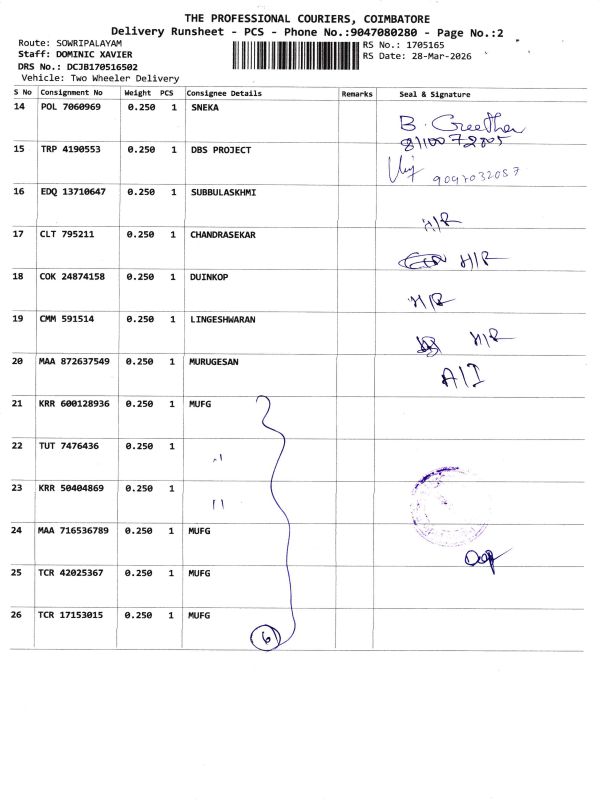 THE PROFESSIONAL COURIERS, COIMBATORE
Delivery Runsheet - PCS - Phone No.:9047080280 - Page No.:2
Route: SOWRIPALAYAM
Staff: DOMINIC XAVIER RS No.: 1705165
DRS No.: DCJB170516502 RS Date: 28-Mar-2026
Vehicle: Two Wheeler Delivery
S No Consignment No Weight PCS Consignee Details Remarks Seal & Signature
14 POL 7060969 0.250 1 SNEKA B. Geetha
8110072805
15 TRP 4190553 0.250 1 DBS PROJECT
9047032087
16 EDQ 13710647 0.250 1 SUBBULASKHMI H/R
17 CLT 795211 0.250 1 CHANDRASEKAR H/R
18 COK 24874158 0.250 1 DUINKOP H/R
19 CMM 591514 0.250 1 LINGESHWARAN H/R
20 MAA 872637549 0.250 1 MURUGESAN A/I
21 KRR 600128936 0.250 1 MUFG
22 TUT 7476436 0.250 1 "
23 KRR 50404869 0.250 1 "
24 MAA 716536789 0.250 1 MUFG
25 TCR 42025367 0.250 1 MUFG
26 TCR 17153015 0.250 1 MUFG
6